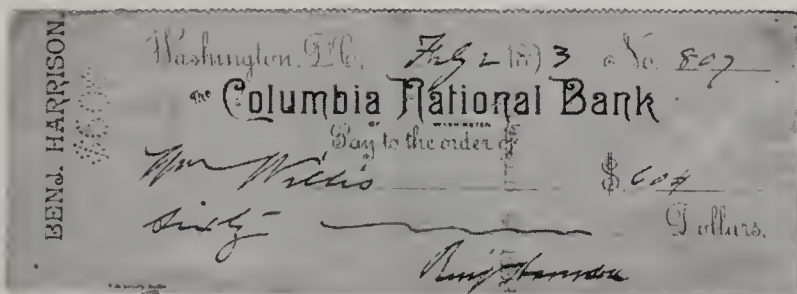 BENJ. HARRISON.
Washington, D.C. Feby 2 1893 No. 807
The Columbia National Bank
OF WASHINGTON
Pay to the order of
Wm Willis $ 60
Sixty Dollars.
Benj Harrison